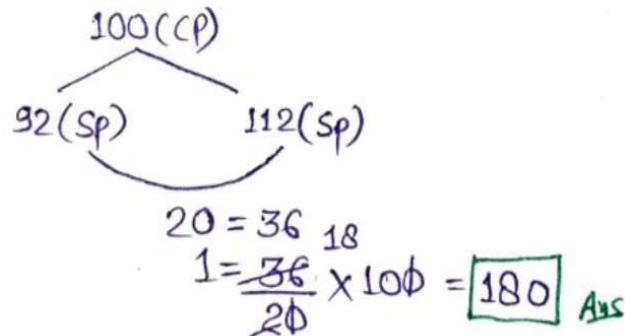 100(CP)
92(SP) 112(SP)
20 = 36 18
1 = 36/20 × 100 = 180 Ans